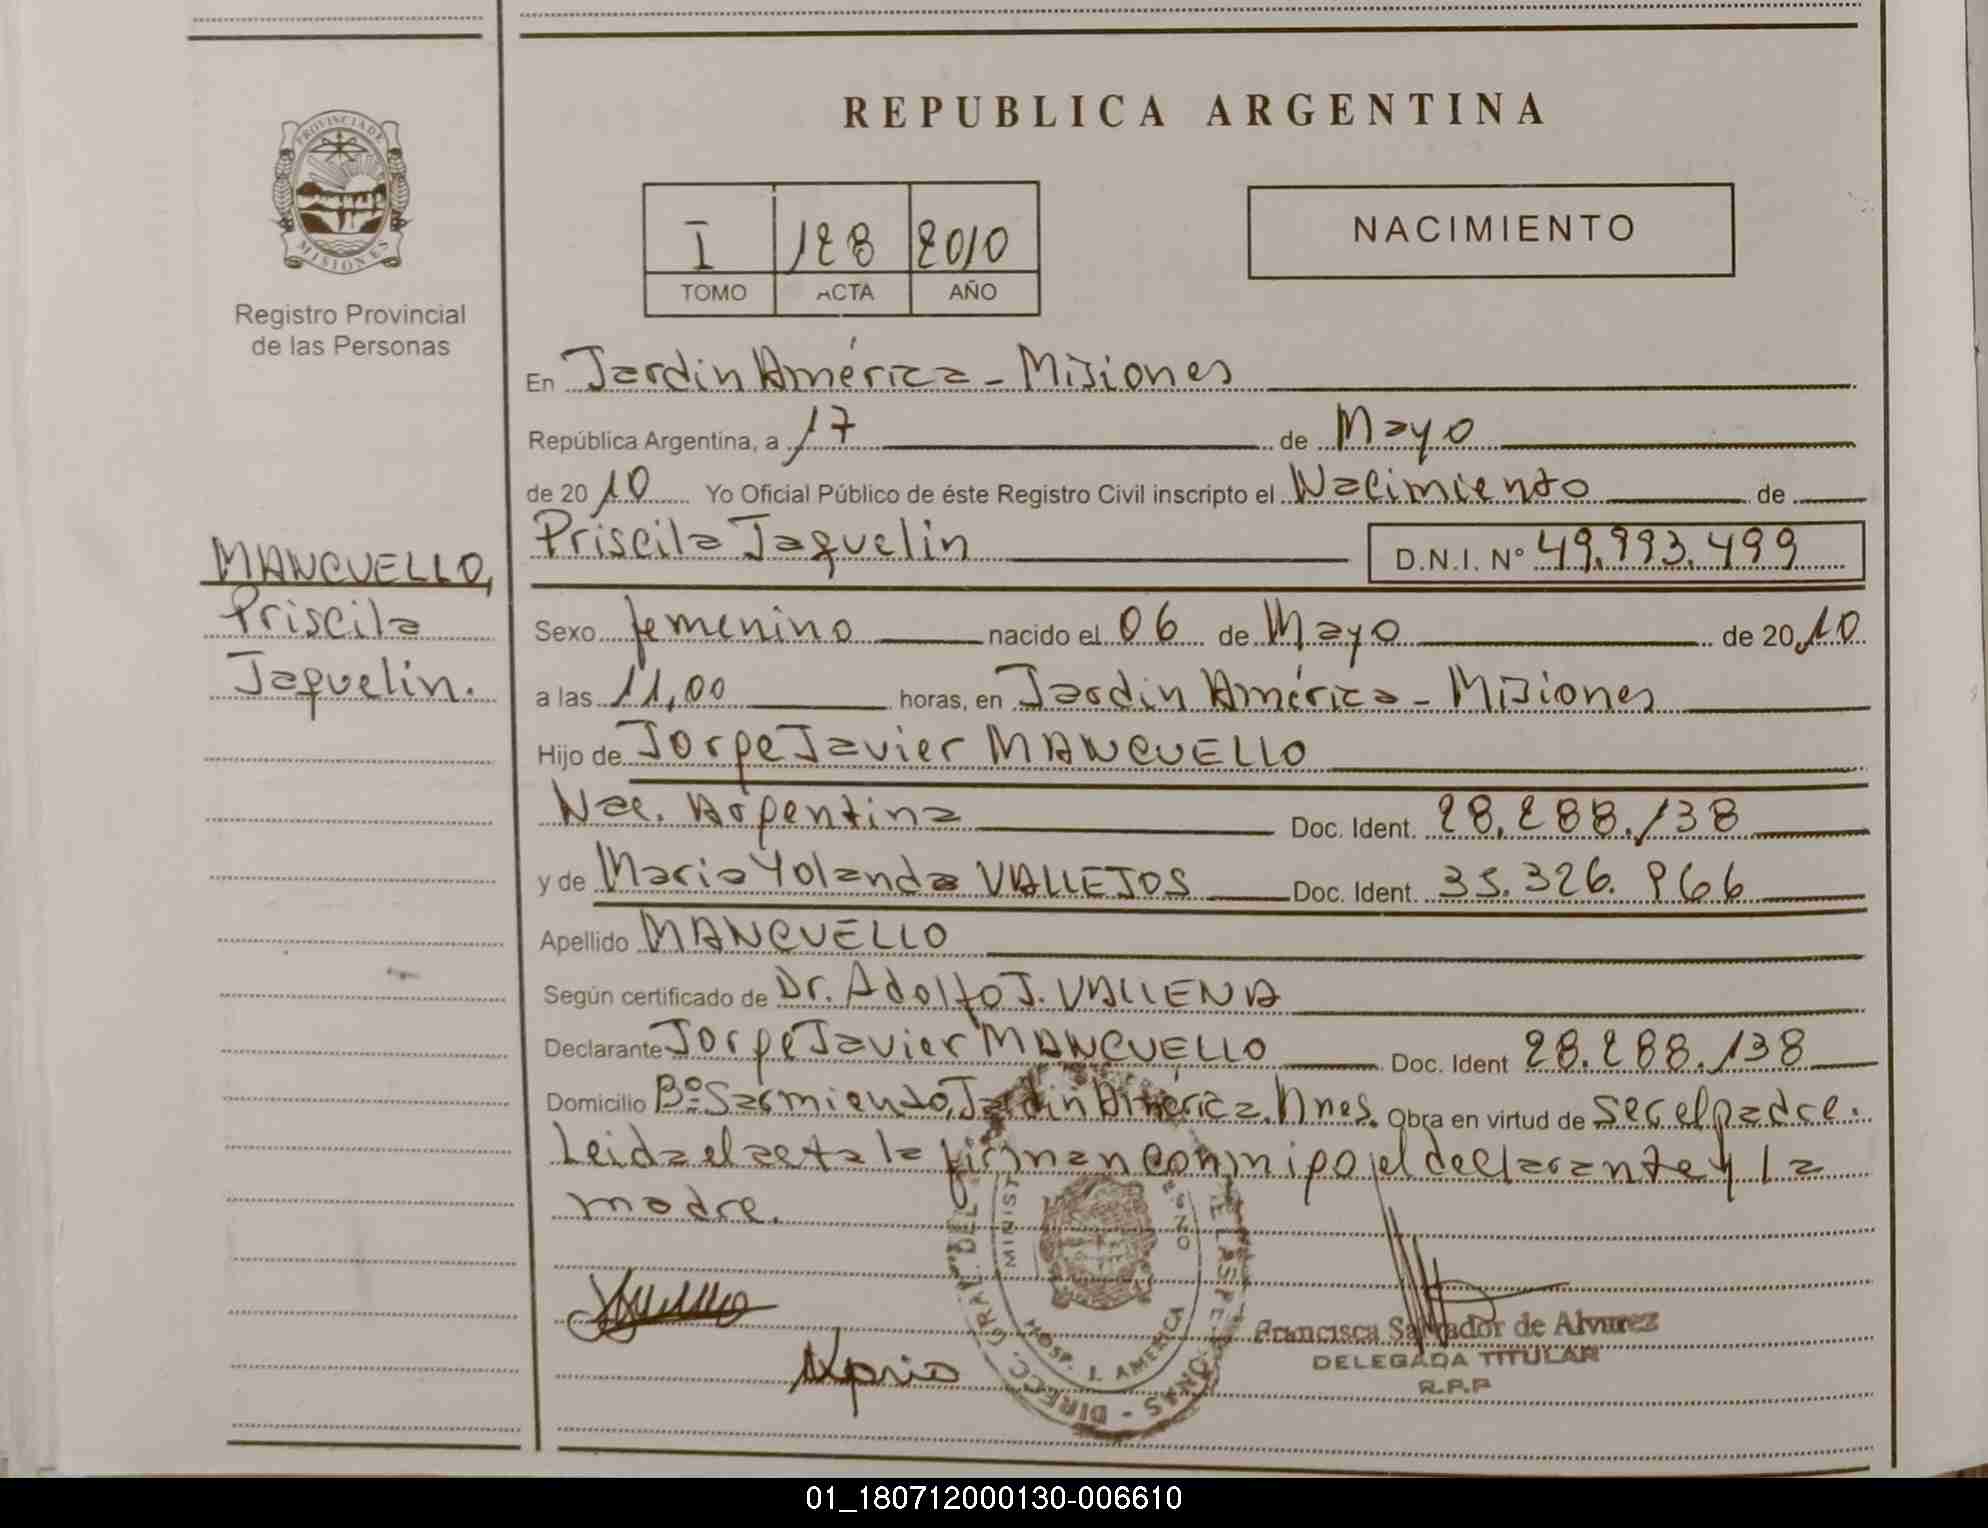 REPUBLICA ARGENTINA
PROVINCIA DE
MISIONES
Registro Provincial
de las Personas
I 128 2010
TOMO ACTA AÑO
NACIMIENTO
En Jardin América - Misiones
República Argentina, a 17 de Mayo
de 2010 Yo Oficial Público de éste Registro Civil inscripto el Nacimiento de
Priscila Jaquelin D.N.I. Nº 49.993.499
MANCUELLO,
Priscila
Jaquelin.
Sexo femenino nacido el 06 de Mayo de 2010
a las 11,00 horas, en Jardin América - Misiones
Hijo de Jorge Javier MANCUELLO
Nac. Argentina Doc. Ident. 28.288.138
y de Maria Yolanda VALLEJOS Doc. Ident. 35.326.966
Apellido MANCUELLO
Según certificado de Dr. Adolfo J. VALLENA
Declarante Jorge Javier MANCUELLO Doc. Ident 28.288.138
Domicilio Bº Sarmiento, Jardin América. Mnes. Obra en virtud de ser el padre.
Leida el acta la firman conmigo el declarante y la
madre.
DIRECC. GRAL. DEL
HOSP. J. AMERICA
Francisca Salvador de Alvarez
DELEGADA TITULAR
R.P.P
01_180712000130-006610